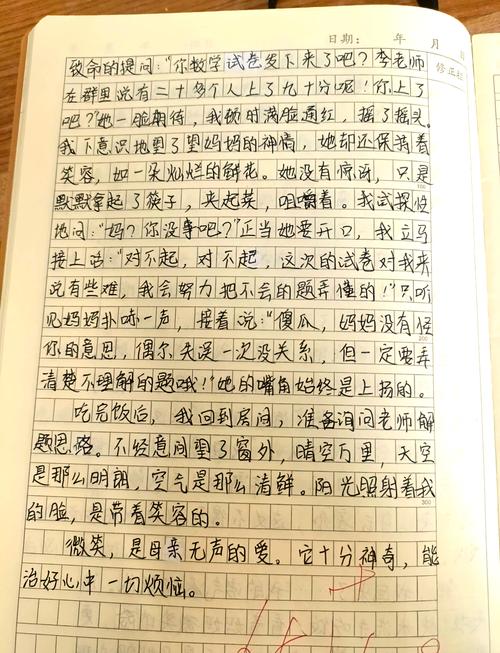 日期： 年 月
修正栏
致命的提问：“你数学试卷发下来了吧？李老师
在群里说有二十多个人上了九十分呢！你上了
吧？”她一脸期待，我顿时满脸通红，摇了摇头。
我下意识地望了望妈妈的神情，她却还保持着
笑容，如一朵灿烂的鲜花。她没有惊讶，只是
默默拿起了筷子，夹起菜，咀嚼着。我试探性
地问：“妈？你没事吧？”正当她要开口，我立马
接上话：“对不起，对不起，这次的试卷对我来
说有些难，我会努力把不会的题弄懂的！”只听
见妈妈扑哧一声，接着说：“傻瓜，妈妈没有怪
你的意思，偶尔失误一次没关系，但一定要弄
清楚不理解的题哦！”她的嘴角始终是上扬的。
吃完饭后，我回到房间，准备询问老师解
题思路。不经意间望了窗外，晴空万里，天空
是那么明朗，空气是那么清鲜。阳光照射着我
的脸，是带着笑容的。
微笑，是母亲无声的爱。它十分神奇，能
治好心中一切烦恼。
100
200
300